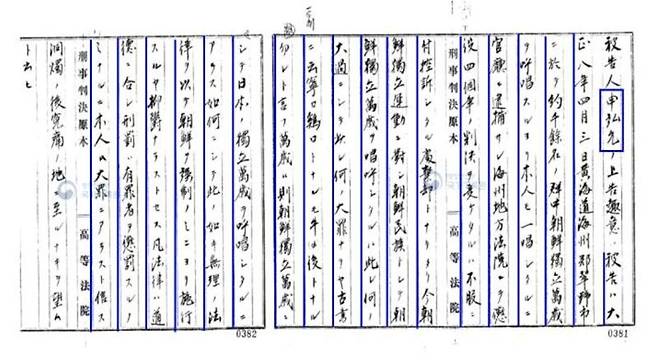 被告人申弘允ノ上告趣意ハ被告ハ大
正八年四月三日黄海道海州郡翠野市
ニ於テ約千餘名ノ群中朝鮮獨立萬歳
ヲ呼唱スルヨリ本人モ一唱シタルニ
官廳ニ逮捕サレ海州地方法院ニテ懲
役四個年ノ判決ヲ受ケタルハ不服ニ
付控訴シタル處棄却トナリタリ今朝
鮮獨立運動ニ對シ朝鮮民族トシテ朝
鮮獨立萬歳ヲ唱呼シタルハ此レ何ノ
大過ニシテ如レ何大罪ナリヤ古書
ニ云寧ロ鶏口トナルモ牛後トナル
勿レト言フ萬歳ハ則朝鮮獨立萬歳ニ
刑事判決原本
高等法院
0381
シテ日本ノ獨立萬歳ヲ呼唱シタルニ
アラス如何ニシテ此ノ如キ無理ノ法
律ヲ以テ朝鮮ヲ強制ノミニヨリ施行
スルヤ抑鬱ナラストセス凡法律ハ道
德ニ合シ刑罰ハ有罪者ヲ懲罰スルノ
ミナルニ本人ハ大罪ニアラスト信ス
洞燭ノ後寃痛ノ地ニ至ルナキヲ望ム
ト云ヒ
刑事判決原本
高等法院
0382